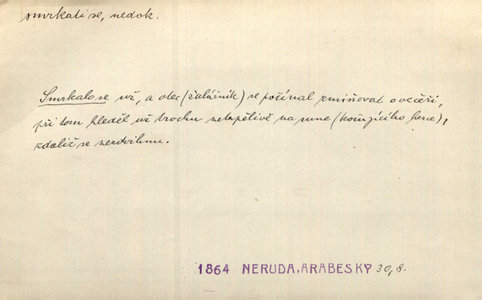 smrkati se, nedok.
Smrkalo se už, a otec (žalářník) se počínal zmiňovat o večeři,
při tom hleděl už trochu netrpělivě na mne (kojícího herce),
zdaliž se nezdvihnu.
1864 NERUDA, ARABESKY 30, 8.